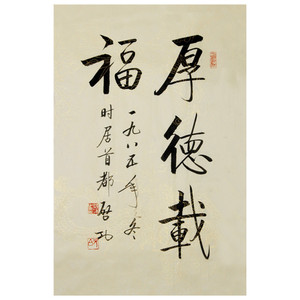 厚德載
福
一九八五年冬
时居首都啓功